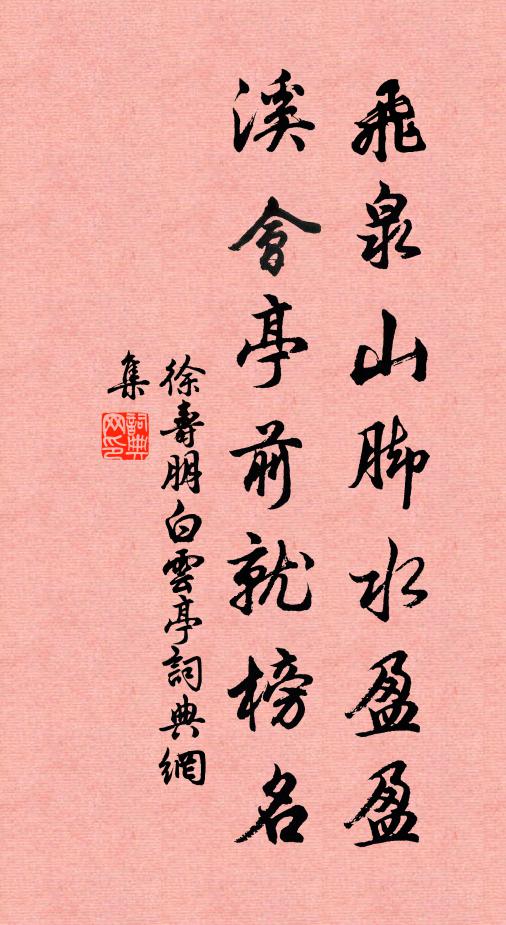 飛泉山脚水盈盈
溪會亭前就榜名
徐壽朋白雲亭詞典網
集
詞典网印